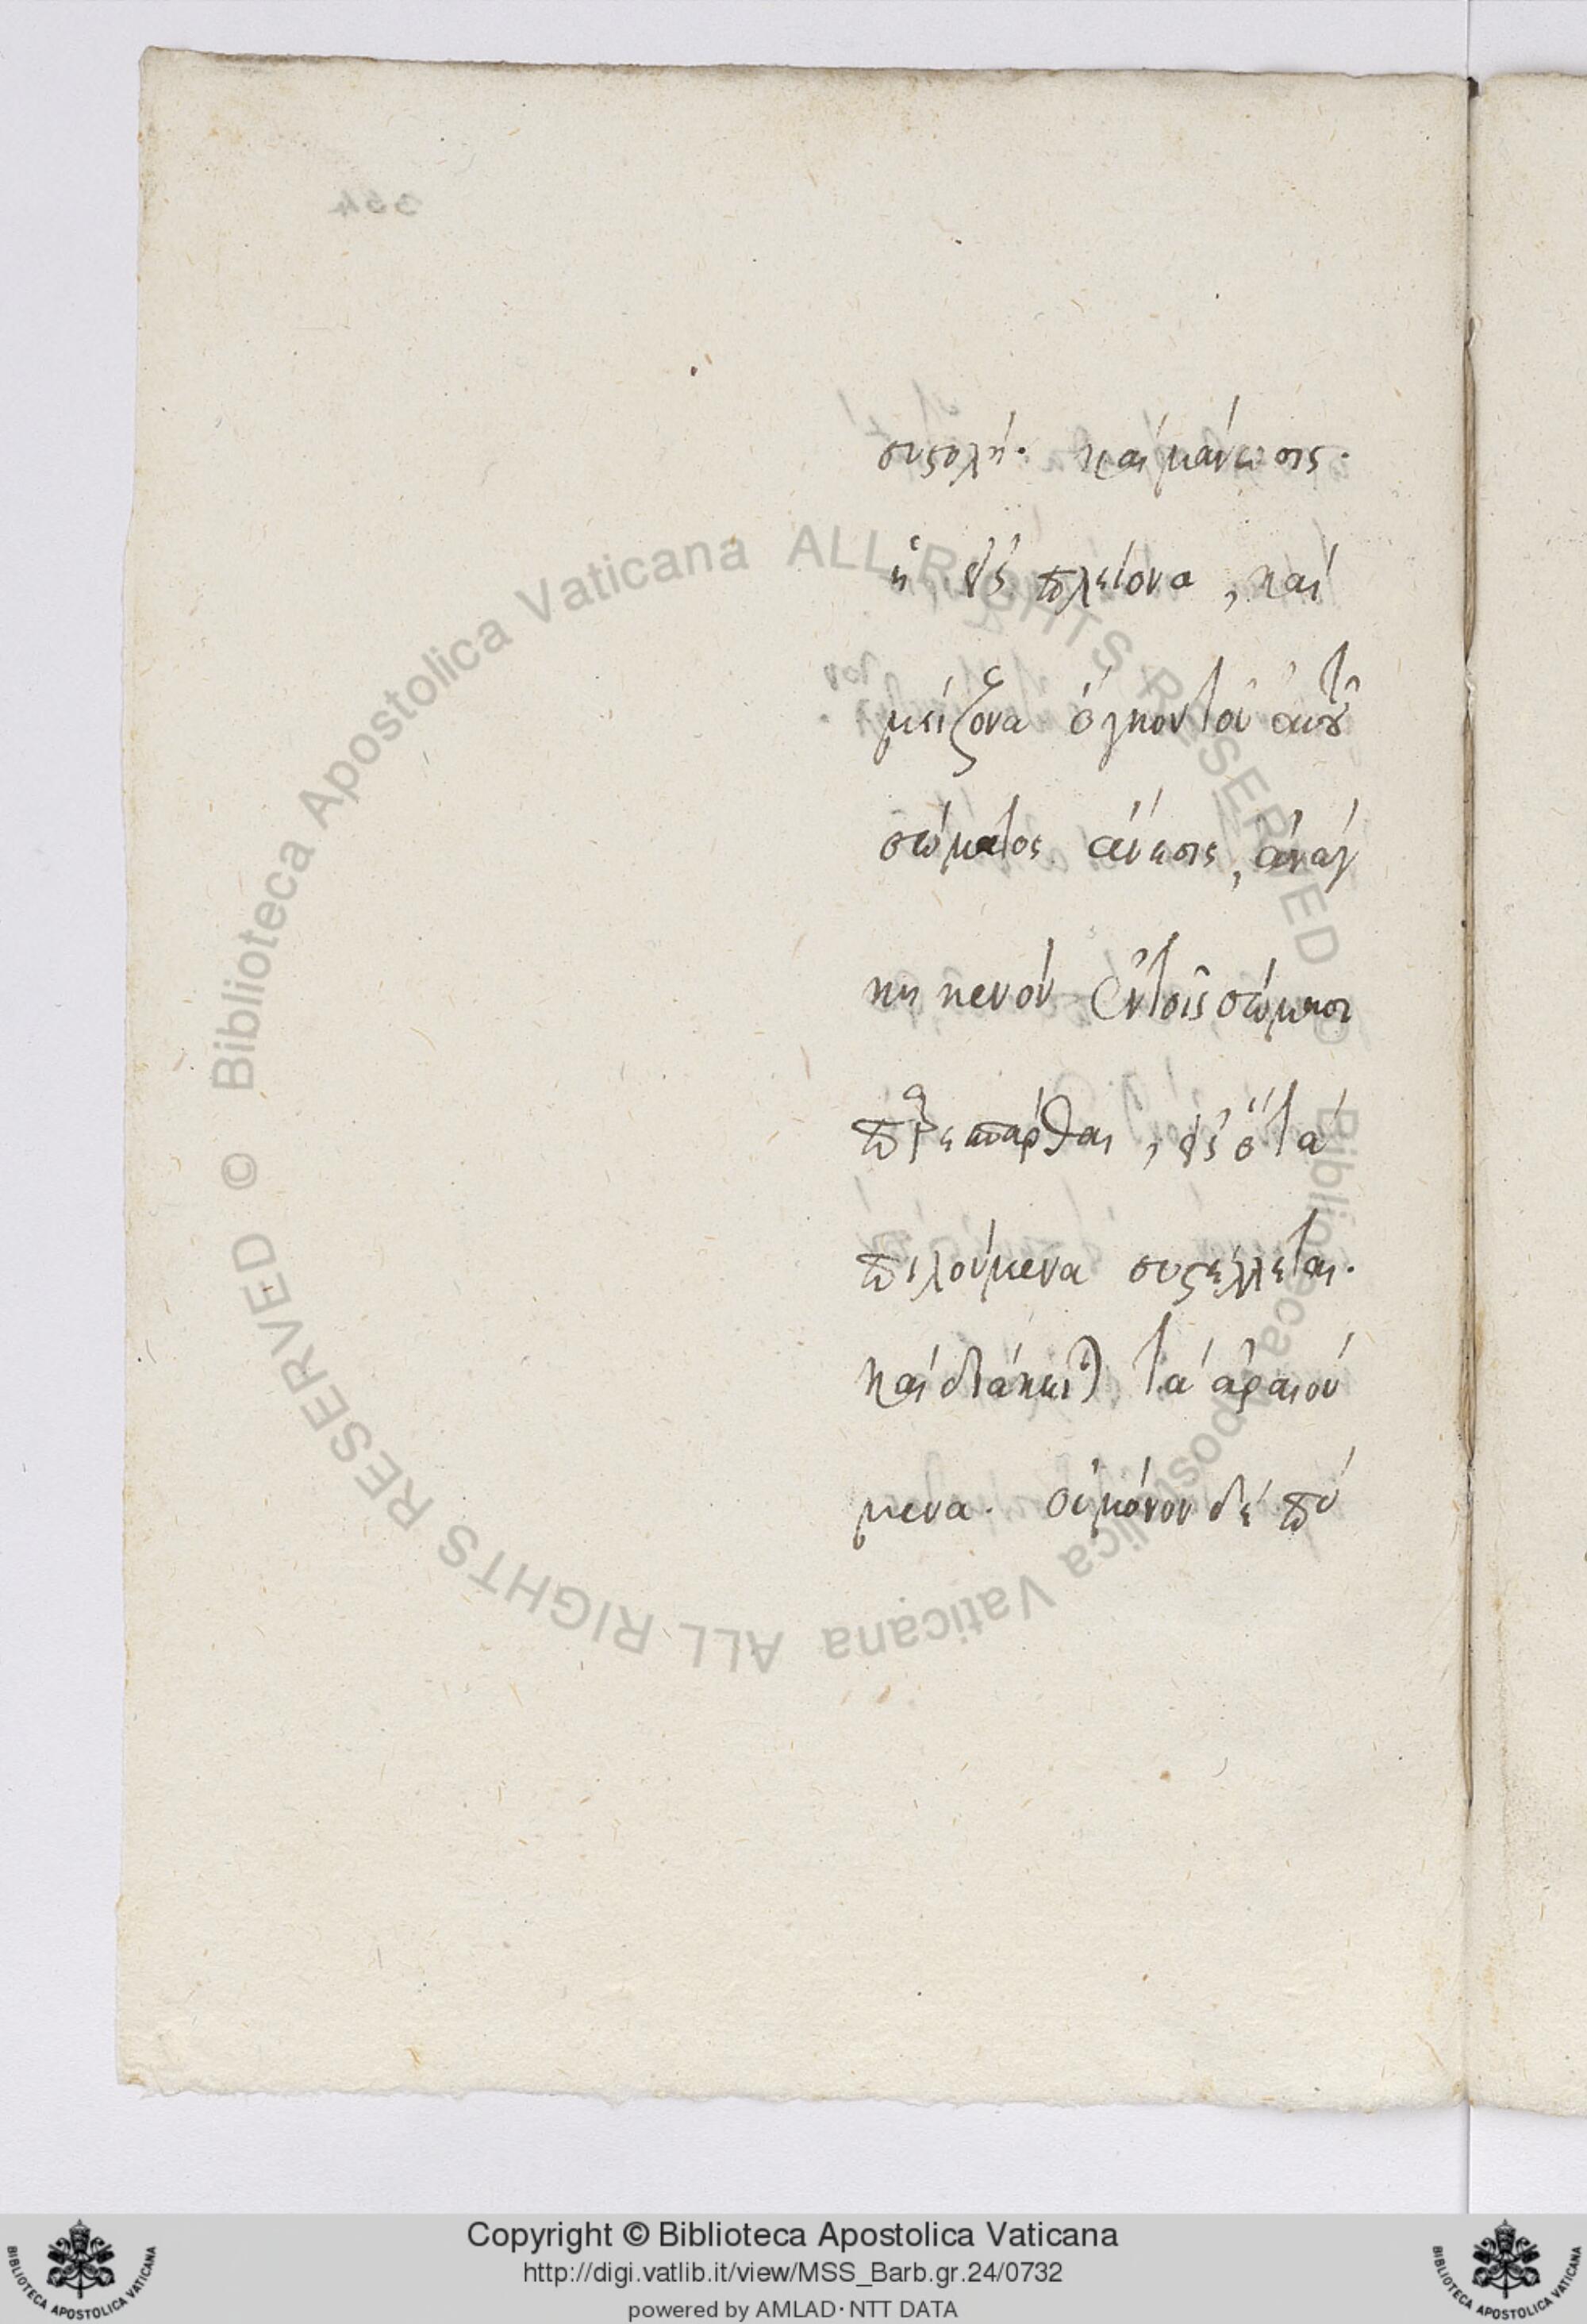 συστολή. καὶ μάνωσις.
ἡ εἰς πλείονα, καὶ
μείζονα ὄγκον τοῦ αὐτοῦ
σώματος αὔξησις, ἀνάγ
κη κενὸν ἐν τοῖς σώμασι
παρεσπάρθαι, εἰς ὃ τὰ
πιλούμενα συστέλλεται.
καὶ διΐσταται τὰ ἀραιού
μενα. οὐ μόνον δὲ πύ
354
Copyright © Biblioteca Apostolica Vaticana
http://digi.vatlib.it/view/MSS_Barb.gr.24/0732
powered by AMLAD · NTT DATA
© Biblioteca Apostolica Vaticana ALL RIGHTS RESERVED
© Biblioteca Apostolica Vaticana ALL RIGHTS RESERVED
BIBLIOTECA APOSTOLICA VATICANA
BIBLIOTECA APOSTOLICA VATICANA